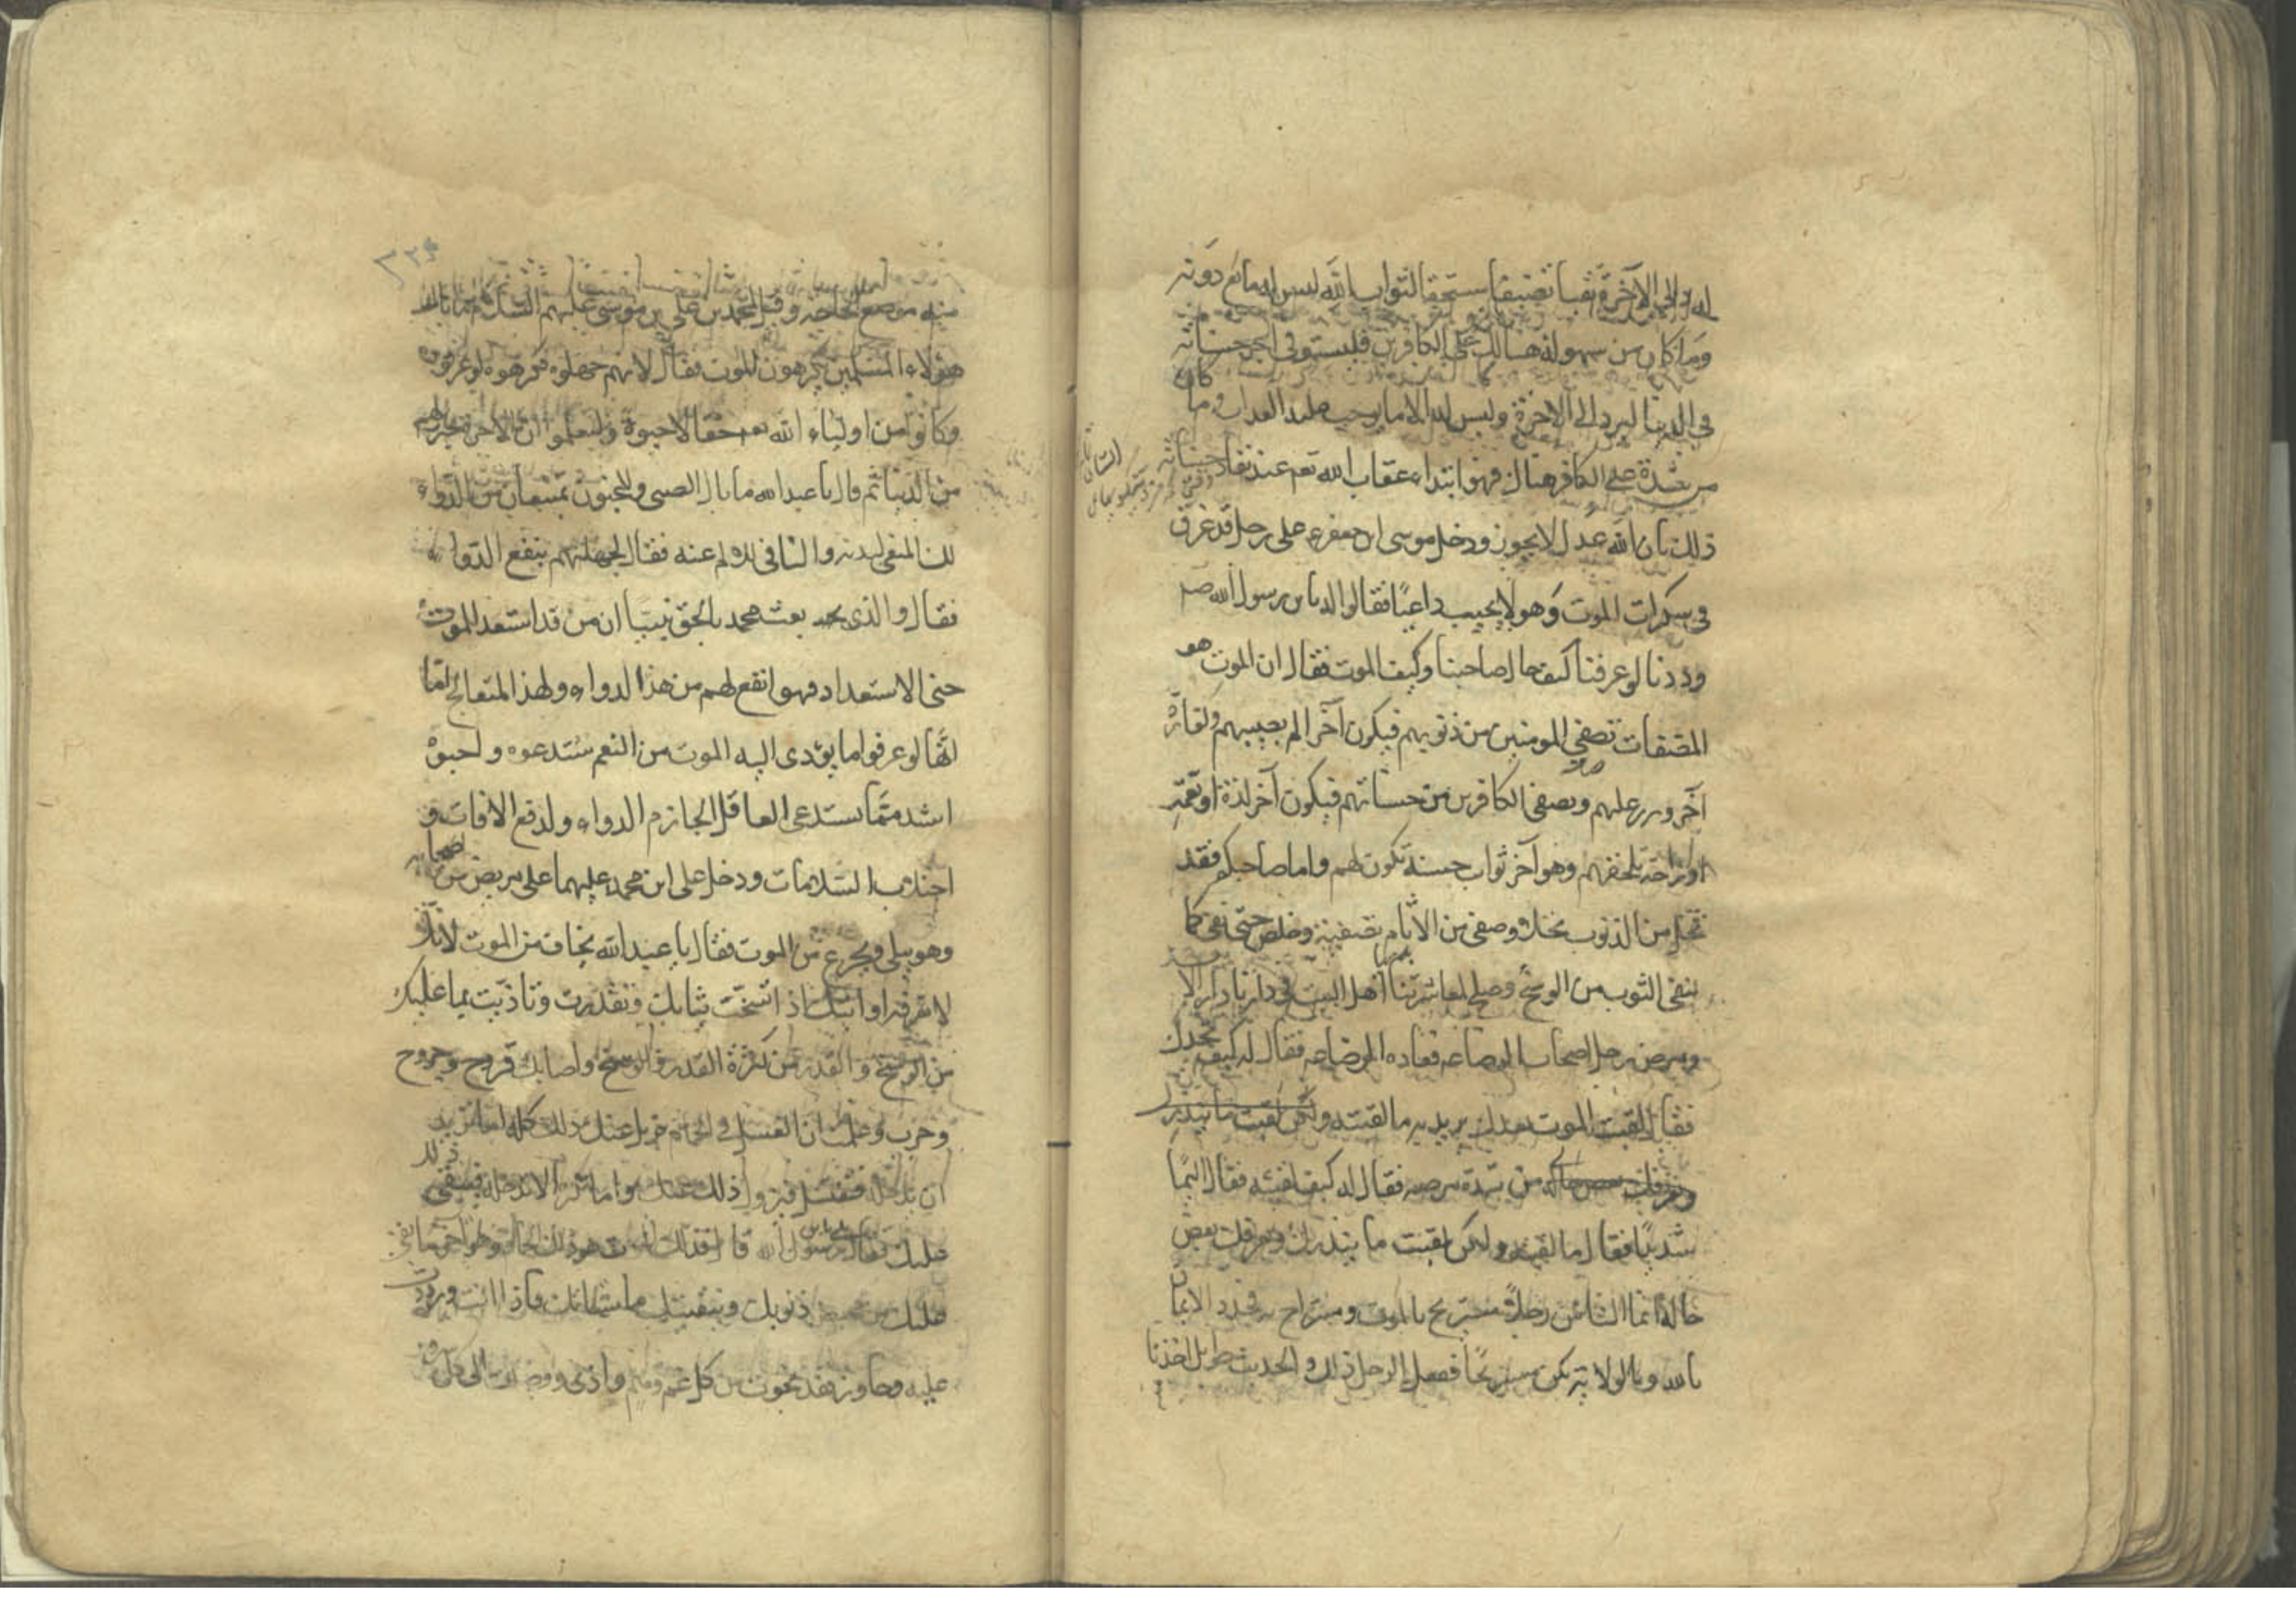 الى الآخرة نقيا نضيفا مستحقا لثواب الله ليس له مانع دونه
وما كان من سهولة هنالك على الكافرين فليستوفى اجر حسناته
في الدنيا ليرد الى الآخرة وليس له الا ما يوجب عليه العذاب وما كان
من شدة على الكافر هناك فهو ابتداء عقاب الله تعم عند نفاد حسناته
ذلك بان الله عدل لا يجوز ودخل موسى ابن جعفر ع على رجل قد غرق
في سكرات الموت وهو لا يجيب داعيا فقالوا له يا بن رسول الله ص
وددنا لو عرفنا كيف حال صاحبنا وكيف الموت فقال ان الموت هو
المصفات تصفي المومنين من ذنوبهم فيكون آخر الم يصيبهم وكفارة
آخر وزر عليهم ويصفى الكافرين من حسناتهم فيكون آخر لذة او نعمة
او راحة تلحقهم وهو آخر ثواب حسنة تكون لهم واما صاحبكم فقد
نخل من الذنوب نخلا وصفى من الآثام تصفية وخلص حتى نقى كما
ينقى الثوب من الوسخ وصلح لمعاشرتنا اهل البيت في دارنا دار الابد
ومرض رجل اصحاب الرضا ع فعاده الرضا ع فقال له كيف تجدك
فقال لقيت الموت بعدك يريد به ما لقيته ولكن لقيت ما ينذرك
ويعرفك بعض حاله من شدة مرضه فقال له كيف لقيته فقال اليما
شديدا فقال ما لقيته ولكن لقيت ما ينذرك ويعرفك بعض
حاله انما الناس رجلان مستريح بالموت ومستراح به فجدد الايمان
بالله وبالولاية تكن مستريحا ففعل الرجل ذلك والحديث طويل اخذنا
منه موضع الحاجة وقيل لمحمد بن علي بن موسى عليهم السلام ما بال
هؤلاء المسلمين يكرهون الموت فقال لانهم جهلوه فكرهوه لو عرفوه
وكانوا من اولياء الله تعم حقا لاحبوه وليعلموا ان الآخرة خير لهم
من الدنيا ثم قال يا عبد الله ما بال الصبى والمجنون يمتنعان من الدواء
المنقى لبدنه والنافى للالم عنه فقال لجهلهم بنفع الدواء
فقال والذى بعث محمد بالحق نبيا ان من قد استعد للموت
حق الاستعداد فهو انفع لهم من هذا الدواء ولهذا المتعالج اما
انها لو عرفوا ما يؤدى اليه الموت من النعم ستدعوه واحبوه
اشد مما يستدعى العاقل الجازم الدواء ولدفع الافات و
اجتلاب السلامات ودخل على ابن محمد عليهما على مريض من اصحابه
وهو يبكى ويجزع من الموت فقال يا عبد الله تخاف من الموت لانك
لا تعرفه اوايتك اذا اتسخت ثيابك وتقذرت وتاذيت بما عليك
من الوسخ والقذر من كثرة القذر والوسخ واصابك قروح وجروح
وجرب وعلمت ان الغسل في الحمام يزيل عنك ذلك كله اما تريد
ان تدخله فتغتسل فيزول ذلك عنك واما تكره الا تدخله فيبقى ذلك
عليك فقال بلى يابن رسول الله قال فذلك الموت هو ذلك الحمام وهو آخر ما بقى
عليك من تمحيص ذنوبك وتنقيتك من سيئاتك فاذا انت وردت
عليه وجاوزته فقد نجوت من كل غم وهم واذى ووصلت الى كل سرور